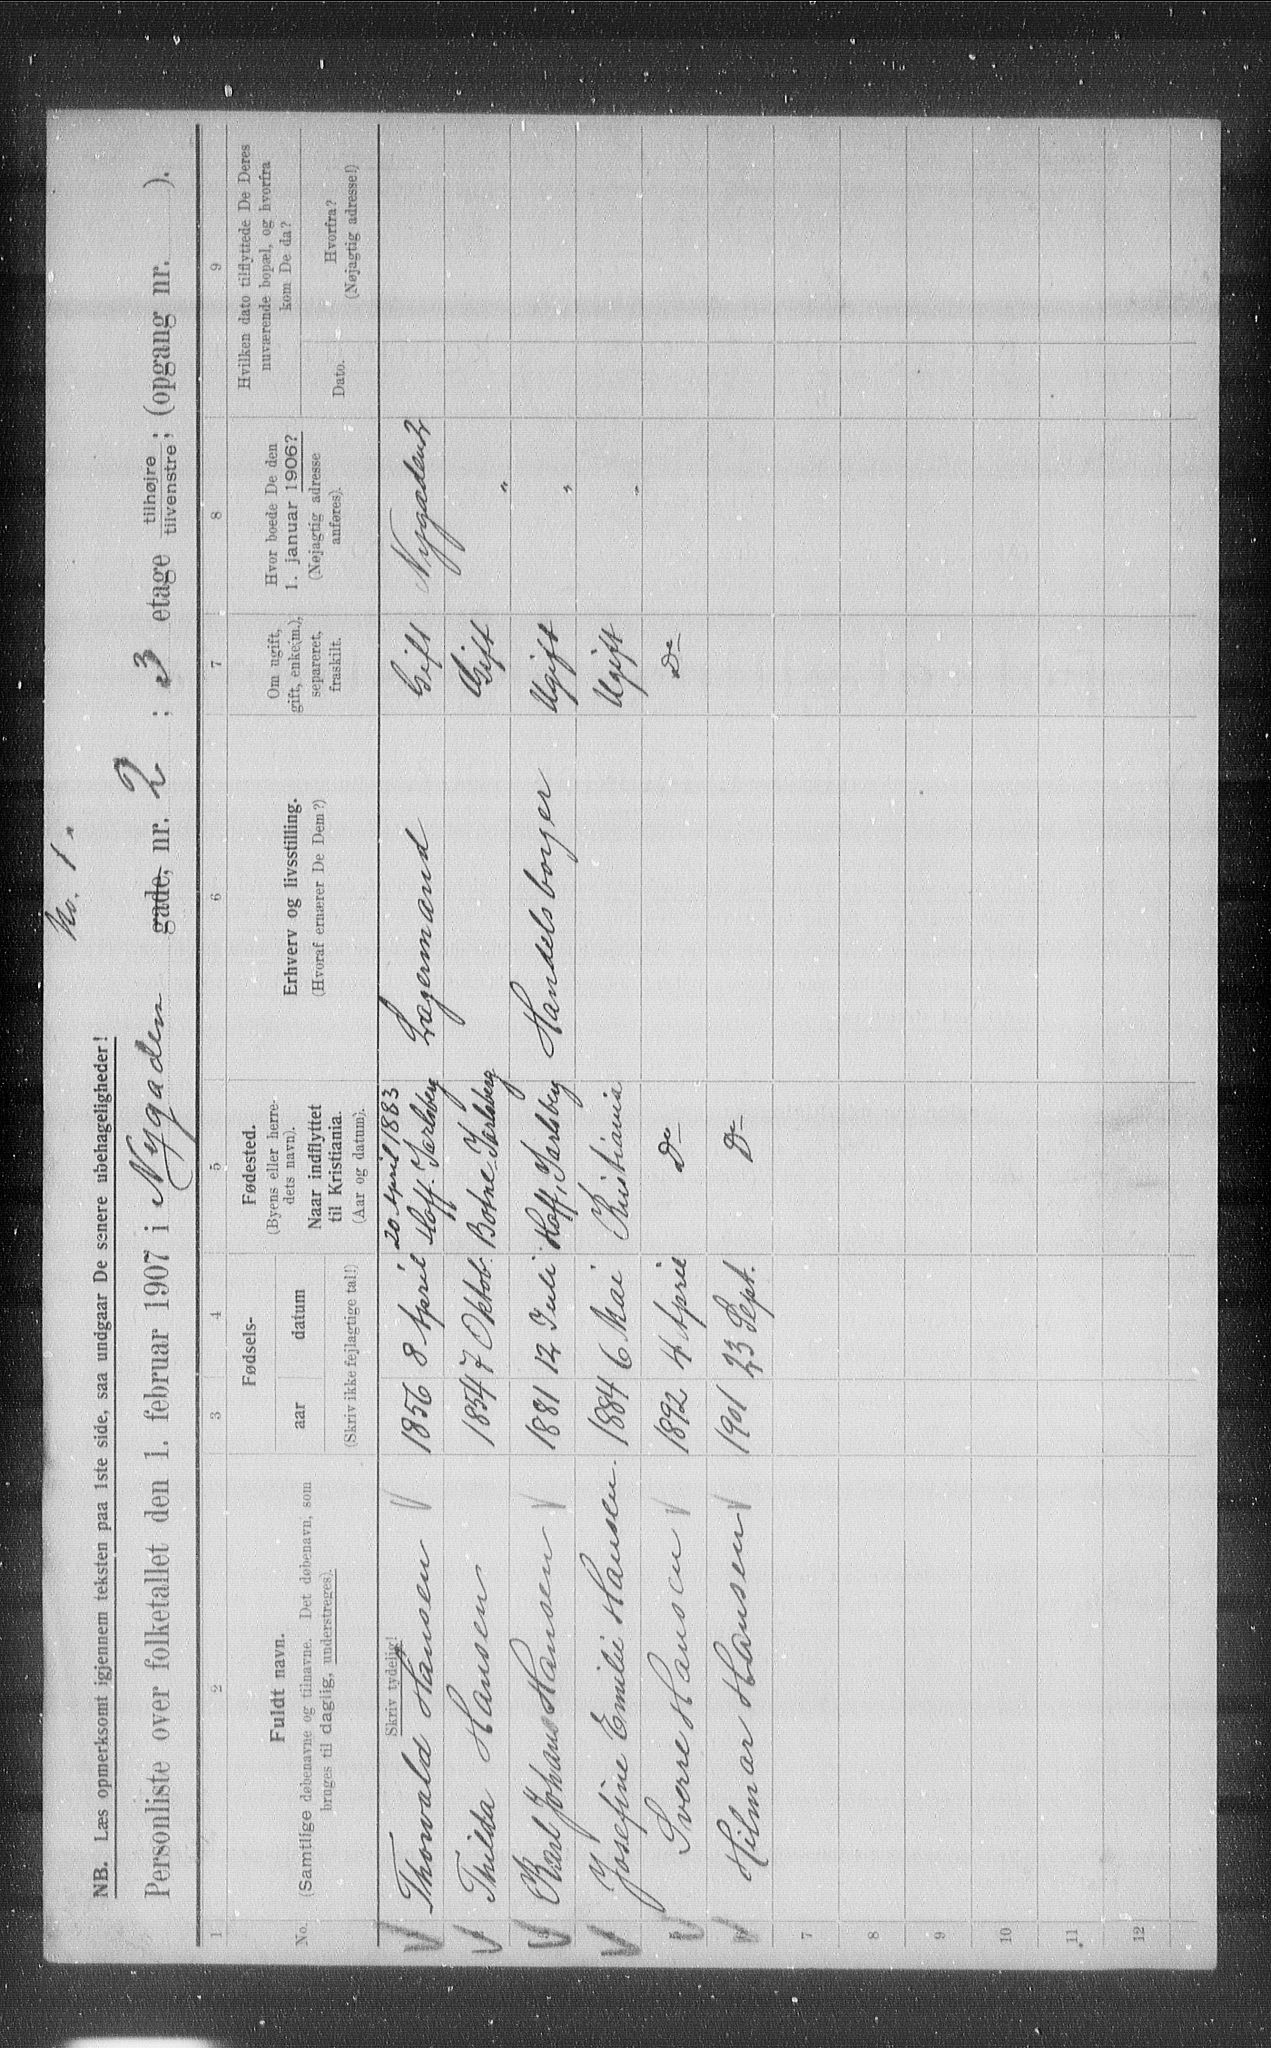 No. 1.
NB. Læs opmerksomt igjennem teksten paa 1ste side, saa undgaar De senere ubehageligheder!
Personliste over folketallet den 1. februar 1907 i Nygaden gade, nr. 2 ; 3 etage tilhøjre tilvenstre; (opgang nr. ).
1 2 3 4 5 6 7 8 9
No.
Fuldt navn.
(Samtlige døbenavne og tilnavne. Det døbenavn, som
bruges til daglig, understreges).
Fødsels-
aar datum
(Skriv ikke fejlagtige tal!)
Fødested.
(Byens eller herre-
dets navn).
Naar indflyttet
til Kristiania.
(Aar og datum).
Erhverv og livsstilling.
(Hvoraf ernærer De Dem?)
Om ugift,
gift, enke(m.),
separeret,
fraskilt.
Hvor boede De den
1. januar 1906?
(Nøjagtig adresse
anføres).
Hvilken dato tilflyttede De Deres
nuværende bopæl, og hvorfra
kom De da?
Dato.
Hvorfra?
(Nøjagtig adresse!)
Skriv tydelig!
20 April 1883
Thorvald Hansen 1856 8 April Hoff. Jarlsberg Lagermand Gift Nygaden 2
Thilda Hansen 1854 7 Oktob. Botne Jarlsberg Gift "
Karl Johan Hansen 1881 12 Juli Hoff, Jarlsberg Handelsborger Ugift "
Josefine Emilie Hansen. 1884 6 Mai Kristiania Ugift "
5 Sverre Hansen 1892 4 April Do Do
6 Hilmar Hansen 1901 23 Sept. Do
7
8
9
10
11
12